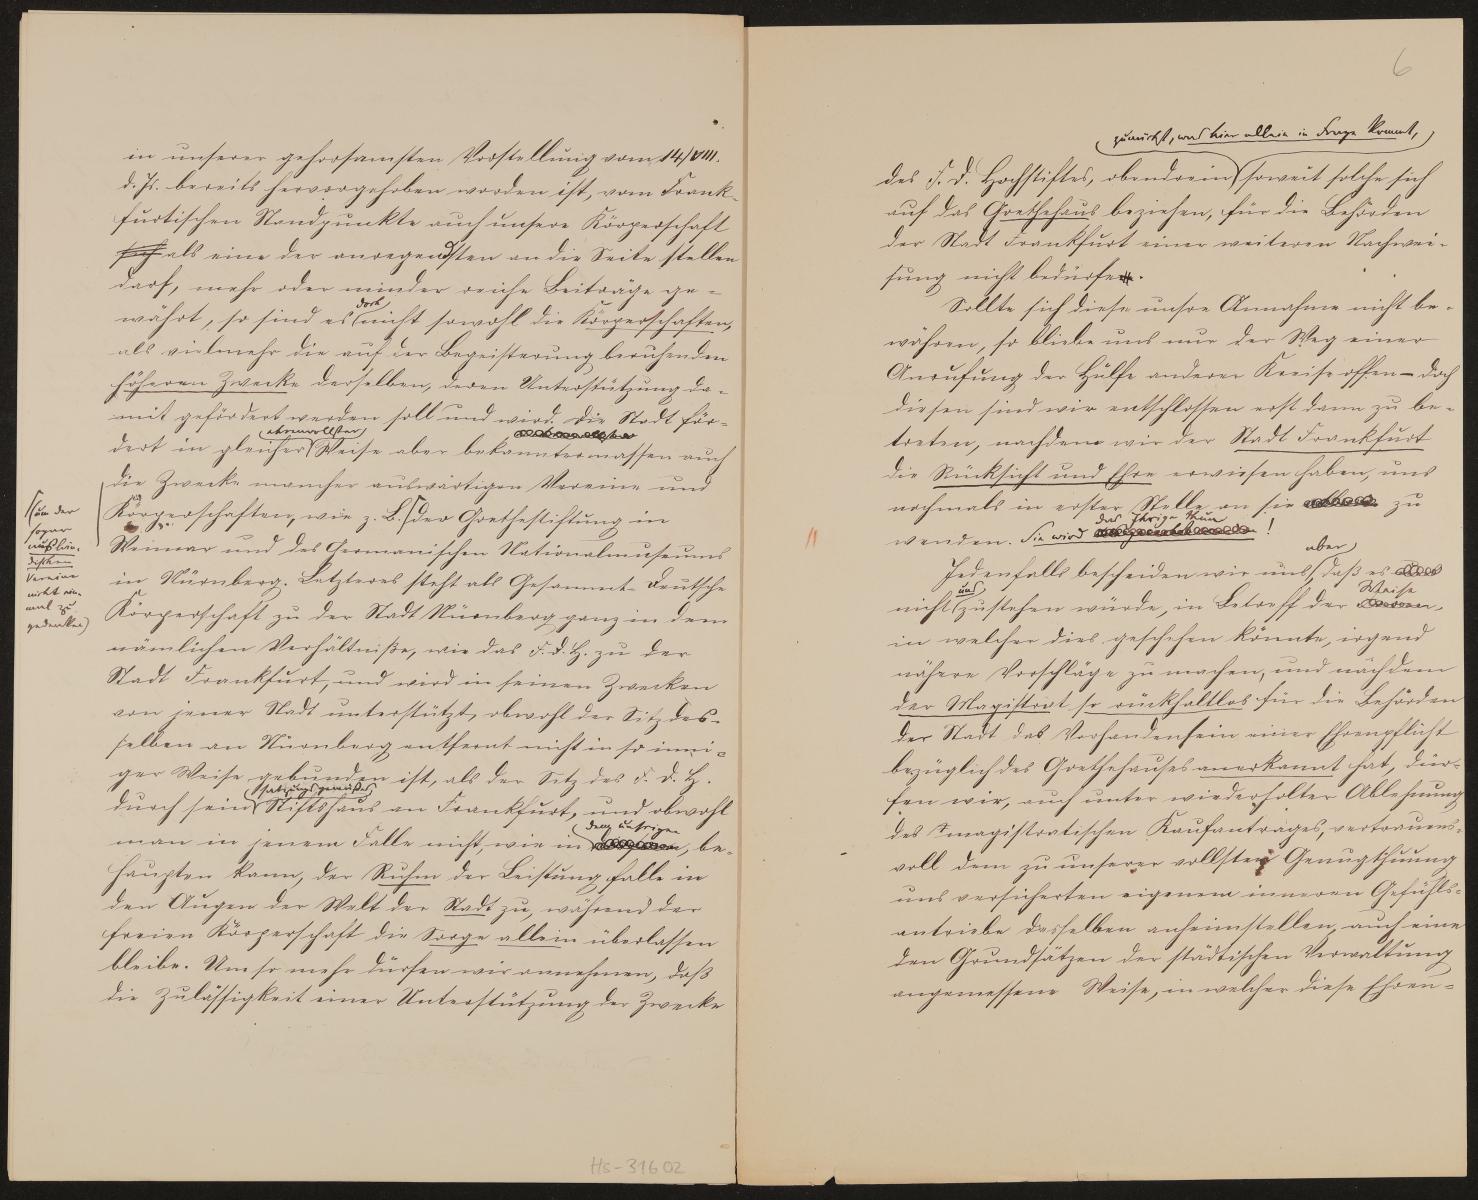 in unserer gehorsamsten Vorstellung vom 14/VIII.
d. Js. bereits hervorgehoben worden ist, vom Frank-
furtischen Standpunkte auch unsere Körperschaft
als eine der anregendsten an die Seite stellen
darf, mehr oder minder reiche Beiträge ge-
doch
währt, so sind es nicht sowohl die Körperschaften,
als vielmehr die auf der Begeisterung beruhenden
höheren Zwecke derselben, deren Unterstützung da-
mit gefördert werden soll und wird. Die Stadt för-
ehrenvollster
dert in gleicher Weise aber bekanntermassen auch
die Zwecke mancher auswärtigen Vereine und
Körperschaften, wie z. B. der Goethestiftung in
(um der
sogar
auslän-
dischen
Vereine
nicht ein-
mal zu
gedenken)
Weimar und des Germanischen Nationalmuseums
in Nürnberg. Letzteres steht als Gesammt-Deutsche
Körperschaft zu der Stadt Nürnberg ganz in dem
nämlichen Verhältniße, wie das F. D. H. zu der
Stadt Frankfurt, und wird in seinen Zwecken
von jener Stadt unterstützt, obwohl der Sitz des-
selben an Nürnberg entfernt nicht in so inni-
ger Weise gebunden ist, als der Sitz des F. D. H.
satzungsgemäßes
durch sein Stiftshaus an Frankfurt, und obwohl
dem unsrigen
man in jenem Falle nicht, wie in, be-
haupten kann, der Ruhm der Leistung falle in
den Augen der Welt der Stadt zu, während der
freien Körperschaft die Sorge allein überlassen
bleibe. Um so mehr dürfen wir annehmen, daß
die Zulässigkeit einer Unterstützung der Zwecke
Hs-31602
6
zumächst, was hier allein in Frage kommt,
des F. D. Hochstiftes, obendrein soweit solche sich
auf das Goethehaus beziehen, für die Behörden
der Stadt Frankfurt einer weiteren Nachwei-
sung nicht bedürfe.
Sollte sich diese unsre Annahme nicht be-
währen, so bliebe uns nur der Weg einer
Anrufung der Hülfe anderer Kreise offen – doch
diesen sind wir entschlossen erst dann zu be-
treten, nachdem wir der Stadt Frankfurt
die Rücksicht und Ehre erwiesen haben, uns
nochmals in erster Stelle an sie zu
das Ihrige thun
wenden. Sie wird !
aber
Jedenfalls bescheiden wir uns, daß es
uns
Weise
nicht zustehen würde, in Betreff der
in welcher dies geschehen könnte, irgend
nähere Vorschläge zu machen, und nachdem
der Magistrat so rückhaltlos für die Behörden
der Stadt das Vorhandensein einer Ehrenpflicht
bezüglich des Goethehauses anerkannt hat, dür-
fen wir, auch unter wiederholter Ablehnung
des magistratischen Kaufantrages, vertrauens-
voll dem zu unserer vollsten Genugthuung
uns versicherten eigenem inneren Gefühls-
antriebe desselben anheimstellen, auch eine
den Grundsätzen der städtischen Verwaltung
angemessene Weise, in welcher diese Ehren-